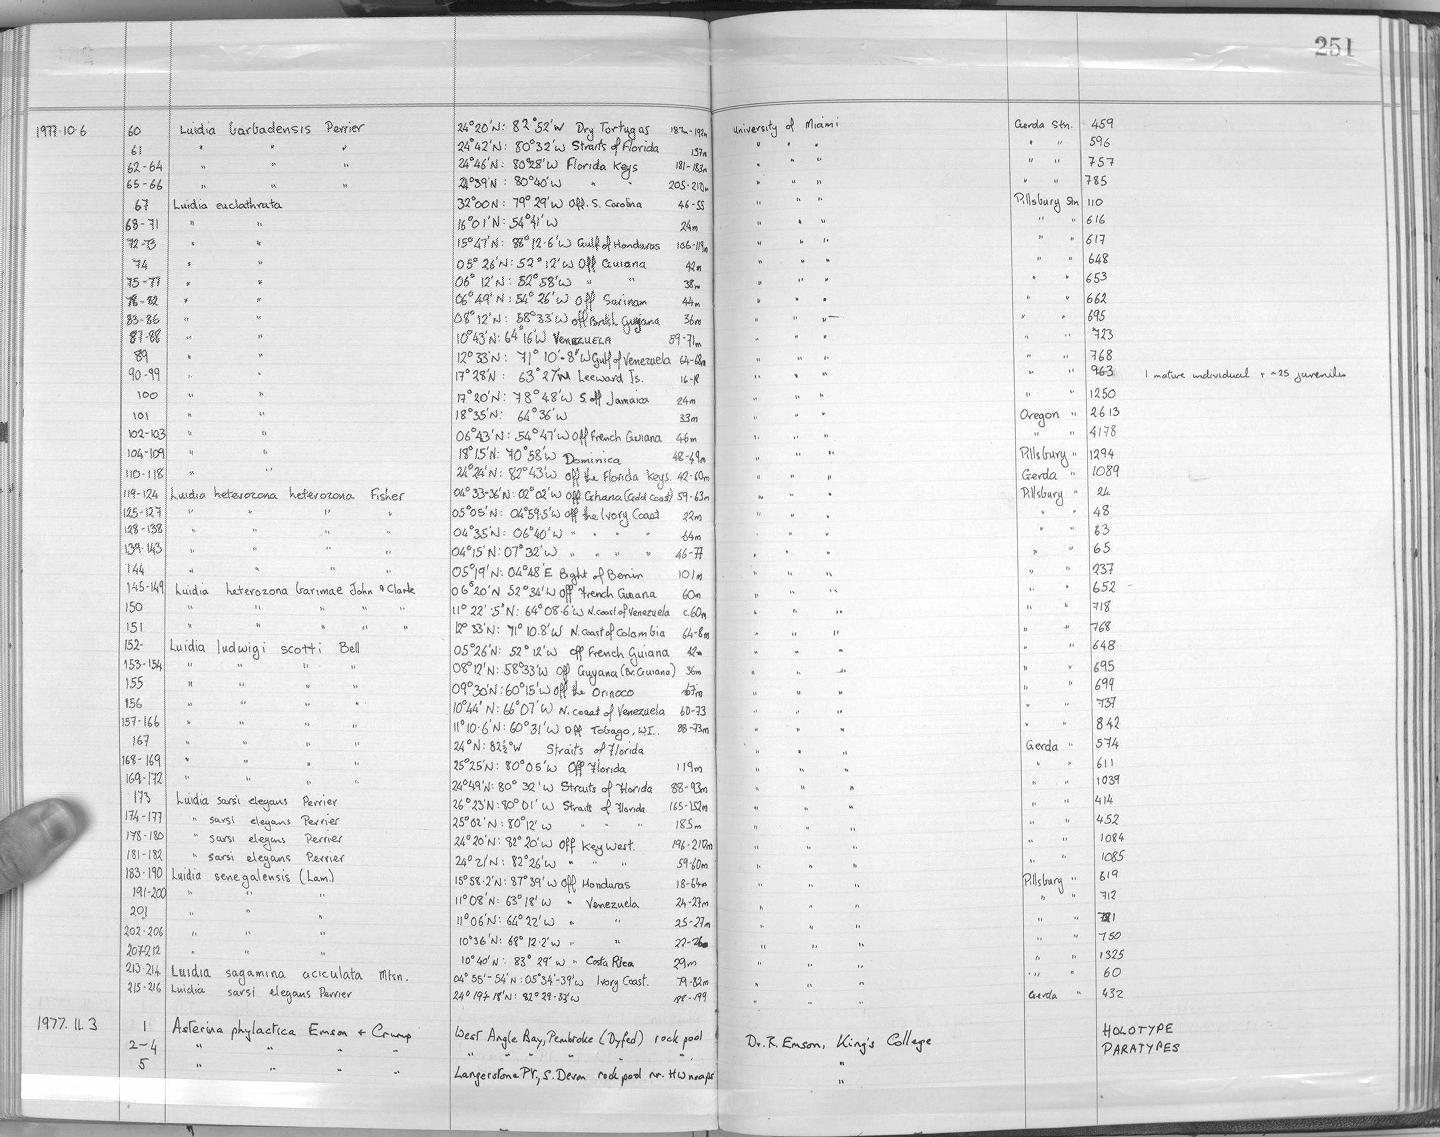 251
1977.10.6 60 Luidia barbadensis Perrier 24°20'N: 82°52'W Dry Tortugas 187m-192m University of Miami Gerda Stn. 459
61 " " " 24°42'N: 80°32'W Straits of Florida 137m " " " " " 596
62-64 " " " 24°46'N: 80°28'W Florida Keys 181-183m " " " " " 757
65-66 " " " 24°39'N: 80°40'W " " 205-210m " " " " " 785
67 Luidia euclathrata 32°00N: 79°29'W Off. S. Carolina 46-55 " " " Pillsbury Stn 110
68-71 " " 16°01'N: 54°41'W 24m " " " " " 616
72-73 " " 15°47'N: 88°12.6'W Gulf of Honduras 106-118m " " " " " 617
74 " " 05°26'N: 52°12'W Off Guiana 42m " " " " " 648
75-77 " " 06°12'N: 52°58'W " " 38m " " " " " 653
78-82 " " 06°49'N: 54°26'W Off Surinam 44m " " " " " 662
83-86 " " 08°12'N: 58°33'W off British Guyana 36m " " " " " 695
87-88 " " 10°43'N: 64°16'W VENEZUELA 59-71m " " " " " 723
89 " " 12°33'N: 71°10.8'W Gulf of Venezuela 64-68m " " " " " 768
90-99 " " 17°28'N: 63°27'W Leeward Is. " " " " " 963 1 mature individual + ~25 juveniles
100 " " 17°20'N: 78°48'W S. off Jamaica 24m " " " " " 1250
101 " " 18°35'N: 64°36'W 33m " " " Oregon " 2613
102-103 " " 06°43'N: 54°47'W Off French Guiana 46m " " " " " 4178
104-109 " " 18°15'N: 70°58'W Dominica 48-49m " " " Pillsbury " 1294
110-118 " " 24°24'N: 82°43'W off the Florida Keys. 42-60m " " " Gerda " 1089
119-124 Luidia heterozona heterozona Fisher 04°33-36'N: 02°02'W Off Ghana (Gold Coast) 59-63m " " " Pillsbury " 24
125-127 " " " " 05°05'N: 04°59.5'W off the Ivory Coast 22m " " " " " 48
128-138 " " " " 04°35'N: 06°40'W " " " " 64m " " " " " 63
139-143 " " " " 04°15'N: 07°32'W " " " " 46-77 " " " " " 65
144 " " " " 05°19'N: 04°48'E Bight of Benin 101m " " " " " 237
145-149 Luidia heterozona barimae John & Clark 06°20'N 52°34'W Off French Guiana 60m " " " " " 652
150 " " " " " 11°22'.5"N: 64°08.6'W N. coast of Venezuela c.60m " " " " " 718
151 " " " " " 12°33'N: 71°10.8'W N. coast of Colombia 64-8m " " " " " 768
152- Luidia ludwigi scotti Bell 05°26'N: 52°12'W off French Guiana 42m " " " " " 648
153-154 " " " " 08°12'N: 58°33'W Off Guyana (Br. Guiana) 36m " " " " " 695
155 " " " " 09°30'N: 60°15'W Off the Orinoco 67m " " " " " 699
156 " " " " 10°44'N: 66°07'W N. coast of Venezuela 60-73 " " " " " 737
157-166 " " " " 11°10.6'N: 60°31'W Off Tobago, W.I. 88-73m " " " " " 842
167 " " " " 24°N: 82½°W Straits of Florida " " " Gerda " 574
168-169 " " " " 25°25'N: 80°05'W Off Florida 119m " " " " " 611
169-172 " " " " 24°49'N: 80°32'W Straits of Florida 88-93m " " " " " 1039
173 Luidia sarsi elegans Perrier 26°23'N: 80°01'W Straits of Florida 165-152m " " " " " 414
174-177 " sarsi elegans Perrier 25°02'N: 80°12'W " " " 185m " " " " " 452
178-180 " sarsi elegans Perrier 24°20'N: 82°20'W Off Key West. 196-210m " " " " " 1084
181-182 " sarsi elegans Perrier 24°21'N: 82°26'W " " " 59-60m " " " " " 1085
183-190 Luidia senegalensis (Lam.) 15°58.2'N: 87°39'W Off Honduras 18-64m " " " Pillsbury " 619
191-200 " " " 11°08'N: 63°18'W " Venezuela 24-27m " " " " " 712
201 " " " 11°06'N: 64°22'W " " 25-27m " " " " "
202-206 " " " 10°36'N: 68°12.2'W " " 22-26m " " " " " 750
207-212 " " " 10°40'N: 83°29'W " Costa Rica 29m " " " " " 1325
213-214 Luidia sagamina aciculata Mtsn. 04°55'-54'N: 05°34'-39'W Ivory Coast. 79-82m " " " " " 60
215-216 Luidia sarsi elegans Perrier 24°19+18'N: 82°29-33'W " " " Gerda " 432
1977.11.3 1 Asterina phylactica Emson + Crump West Angle Bay, Pembroke (Dyfed) rock pool Dr. R. Emson, King's College HOLOTYPE
2-4 " " " " " " " " " " " PARATYPES
5 " " " " Langerstone Pt., S. Devon rock pool nr. HW neaps "